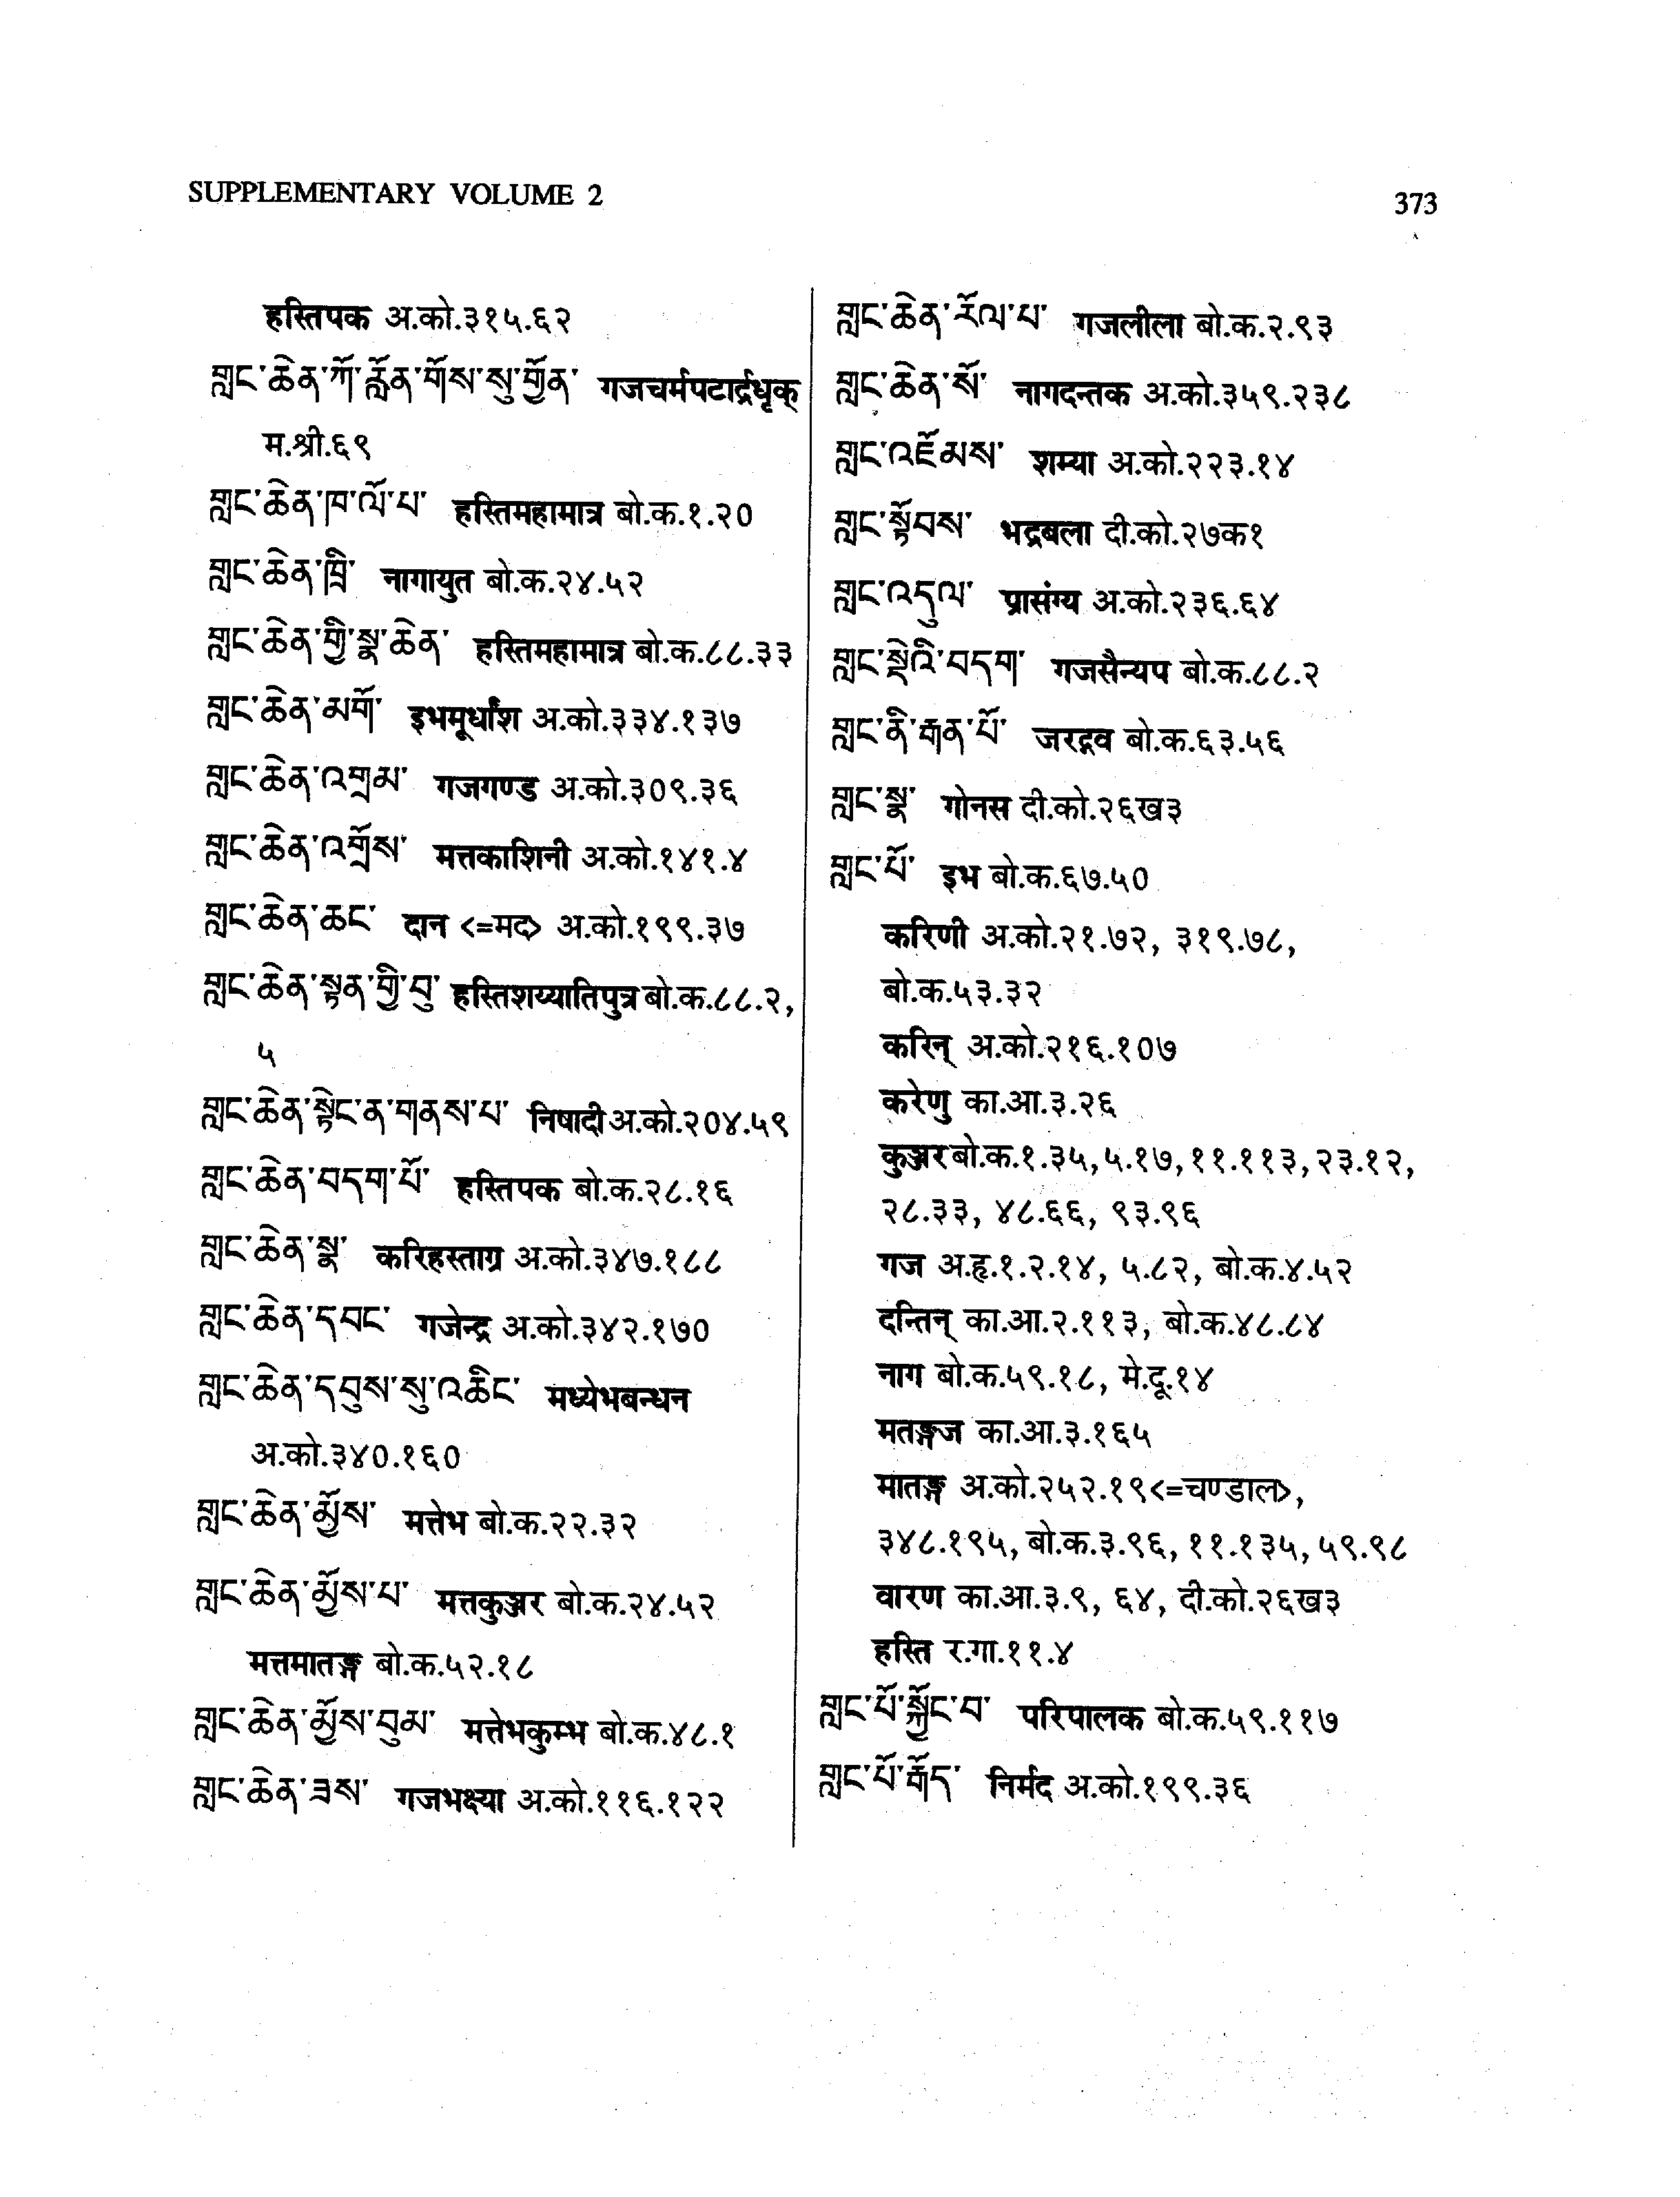 SUPPLEMENTARY VOLUME 2
373
हस्तिपक अ.को.३१५.६२
གླང་ཆེན་ཀོ་རློན་གོས་སུ་གྱོན་ गजचर्मपटार्द्रधृक्
म.श्री.६९
གླང་ཆེན་ཁ་ལོ་པ་ हस्तिमहामात्र बो.क.१.२०
གླང་ཆེན་ཁྲི་ नागायुत बो.क.२४.५२
གླང་ཆེན་གྱི་སྣ་ཆེན་ हस्तिमहामात्र बो.क.८८.३३
གླང་ཆེན་མགོ་ इभमूर्धांश अ.को.३३४.१३७
གླང་ཆེན་འགྲམ་ गजगण्ड अ.को.३०९.३६
གླང་ཆེན་འགྲོས་ मत्तकाशिनी अ.को.१४१.४
གླང་ཆེན་ཆང་ दान <=मद> अ.को.१९९.३७
གླང་ཆེན་སྟན་གྱི་བུ་ हस्तिशय्यातिपुत्र बो.क.८८.२,
५
གླང་ཆེན་སྟེང་ན་གནས་པ་ निषादी अ.को.२०४.५९
གླང་ཆེན་བདག་པོ་ हस्तिपक बो.क.२८.१६
གླང་ཆེན་སྣ་ करिहस्ताग्र अ.को.३४७.१८८
གླང་ཆེན་དབང་ गजेन्द्र अ.को.३४२.१७०
གླང་ཆེན་དབུས་སུ་འཆིང་ मध्येभबन्धन
अ.को.३४०.१६०
གླང་ཆེན་མྱོས་ मत्तेभ बो.क.२२.३२
གླང་ཆེན་མྱོས་པ་ मत्तकुञ्जर बो.क.२४.५२
मत्तमातङ्ग बो.क.५२.१८
གླང་ཆེན་མྱོས་བུམ་ मत्तेभकुम्भ बो.क.४८.१
གླང་ཆེན་ཟས་ गजभक्ष्या अ.को.११६.१२२
གླང་ཆེན་རོལ་པ་ गजलीला बो.क.२.९३
གླང་ཆེན་སོ་ नागदन्तक अ.को.३५९.२३८
གླང་འཇོམས་ शम्या अ.को.२२३.१४
གླང་སྟོབས་ भद्रबला दी.को.२७क१
གླང་འདུལ་ प्रासंग्य अ.को.२३६.६४
གླང་སྡེའི་བདག་ गजसैन्यप बो.क.८८.२
གླང་ནི་རྒན་པོ་ जरद्गव बो.क.६३.५६
གླང་སྣ་ गोनस दी.को.२६ख३
གླང་པོ་ इभ बो.क.६७.५०
करिणी अ.को.२१.७२, ३१९.७८,
बो.क.५३.३२
करिन् अ.को.२१६.१०७
करेणु का.आ.३.२६
कुञ्जर बो.क.१.३५,५.१७,११.११३,२३.१२,
२८.३३, ४८.६६, ९३.९६
गज अ.हृ.१.२.१४, ५.८२, बो.क.४.५२
दन्तिन् का.आ.२.११३, बो.क.४८.८४
नाग बो.क.५९.१८, मे.दू.१४
मतङ्गज का.आ.३.१६५
मातङ्ग अ.को.२५२.१९<=चण्डाल>,
३४८.१९५, बो.क.३.९६, ११.१३५, ५९.९८
वारण का.आ.३.९, ६४, दी.को.२६ख३
हस्ति र.गा.११.४
གླང་པོ་སྐྱོང་བ་ परिपालक बो.क.५९.११७
གླང་པོ་རྒོད་ निर्मद अ.को.१९९.३६